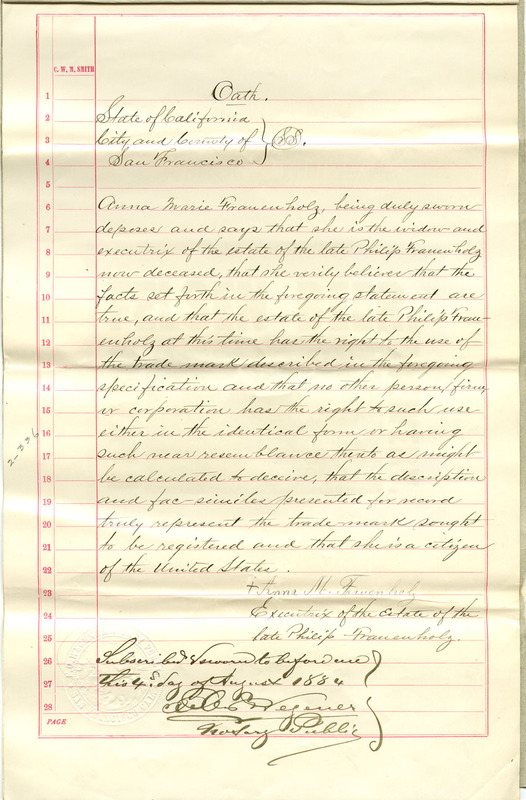 C. W. M. SMITH
1 Oath.
2 State of California
3 City and County of } SS.
4 San Francisco
5
6 Anna Marie Frauenholz, being duly sworn
7 deposes and says that she is the widow and
8 executrix of the estate of the late Philip Frauenholz
9 now deceased, that she verily believes that the
10 facts set forth in the foregoing statement are
11 true, and that the estate of the late Philip Frau-
12 enholz at this time has the right to the use of
13 the trade mark described in the foregoing
14 specification and that no other person, firm,
15 or corporation has the right to such use
16 either in the identical form or having
17 such near resemblance thereto as might
18 be calculated to deceive, that the description
19 and fac-similes presented for record
20 truly represent the trade-mark sought
21 to be registered and that she is a citizen
22 of the United States.
23 Anna M. Frauenholz
24 Executrix of the estate of the
25 late Philip Frauenholz.
26 Subscribed & sworn to before me
27 this 4 day of August 1884
28 Wegener
Notary Public
PAGE
2-336